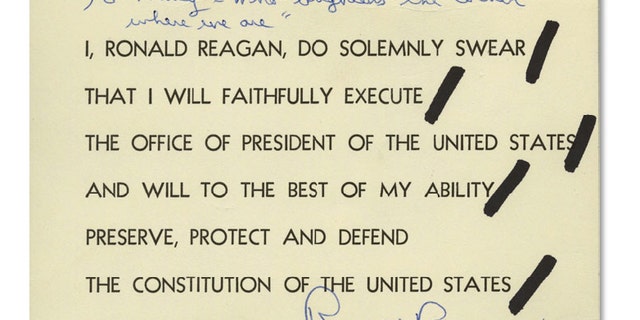 who brightens the corner
where we are"
I, RONALD REAGAN, DO SOLEMNLY SWEAR
THAT I WILL FAITHFULLY EXECUTE
THE OFFICE OF PRESIDENT OF THE UNITED STATES
AND WILL TO THE BEST OF MY ABILITY
PRESERVE, PROTECT AND DEFEND
THE CONSTITUTION OF THE UNITED STATES